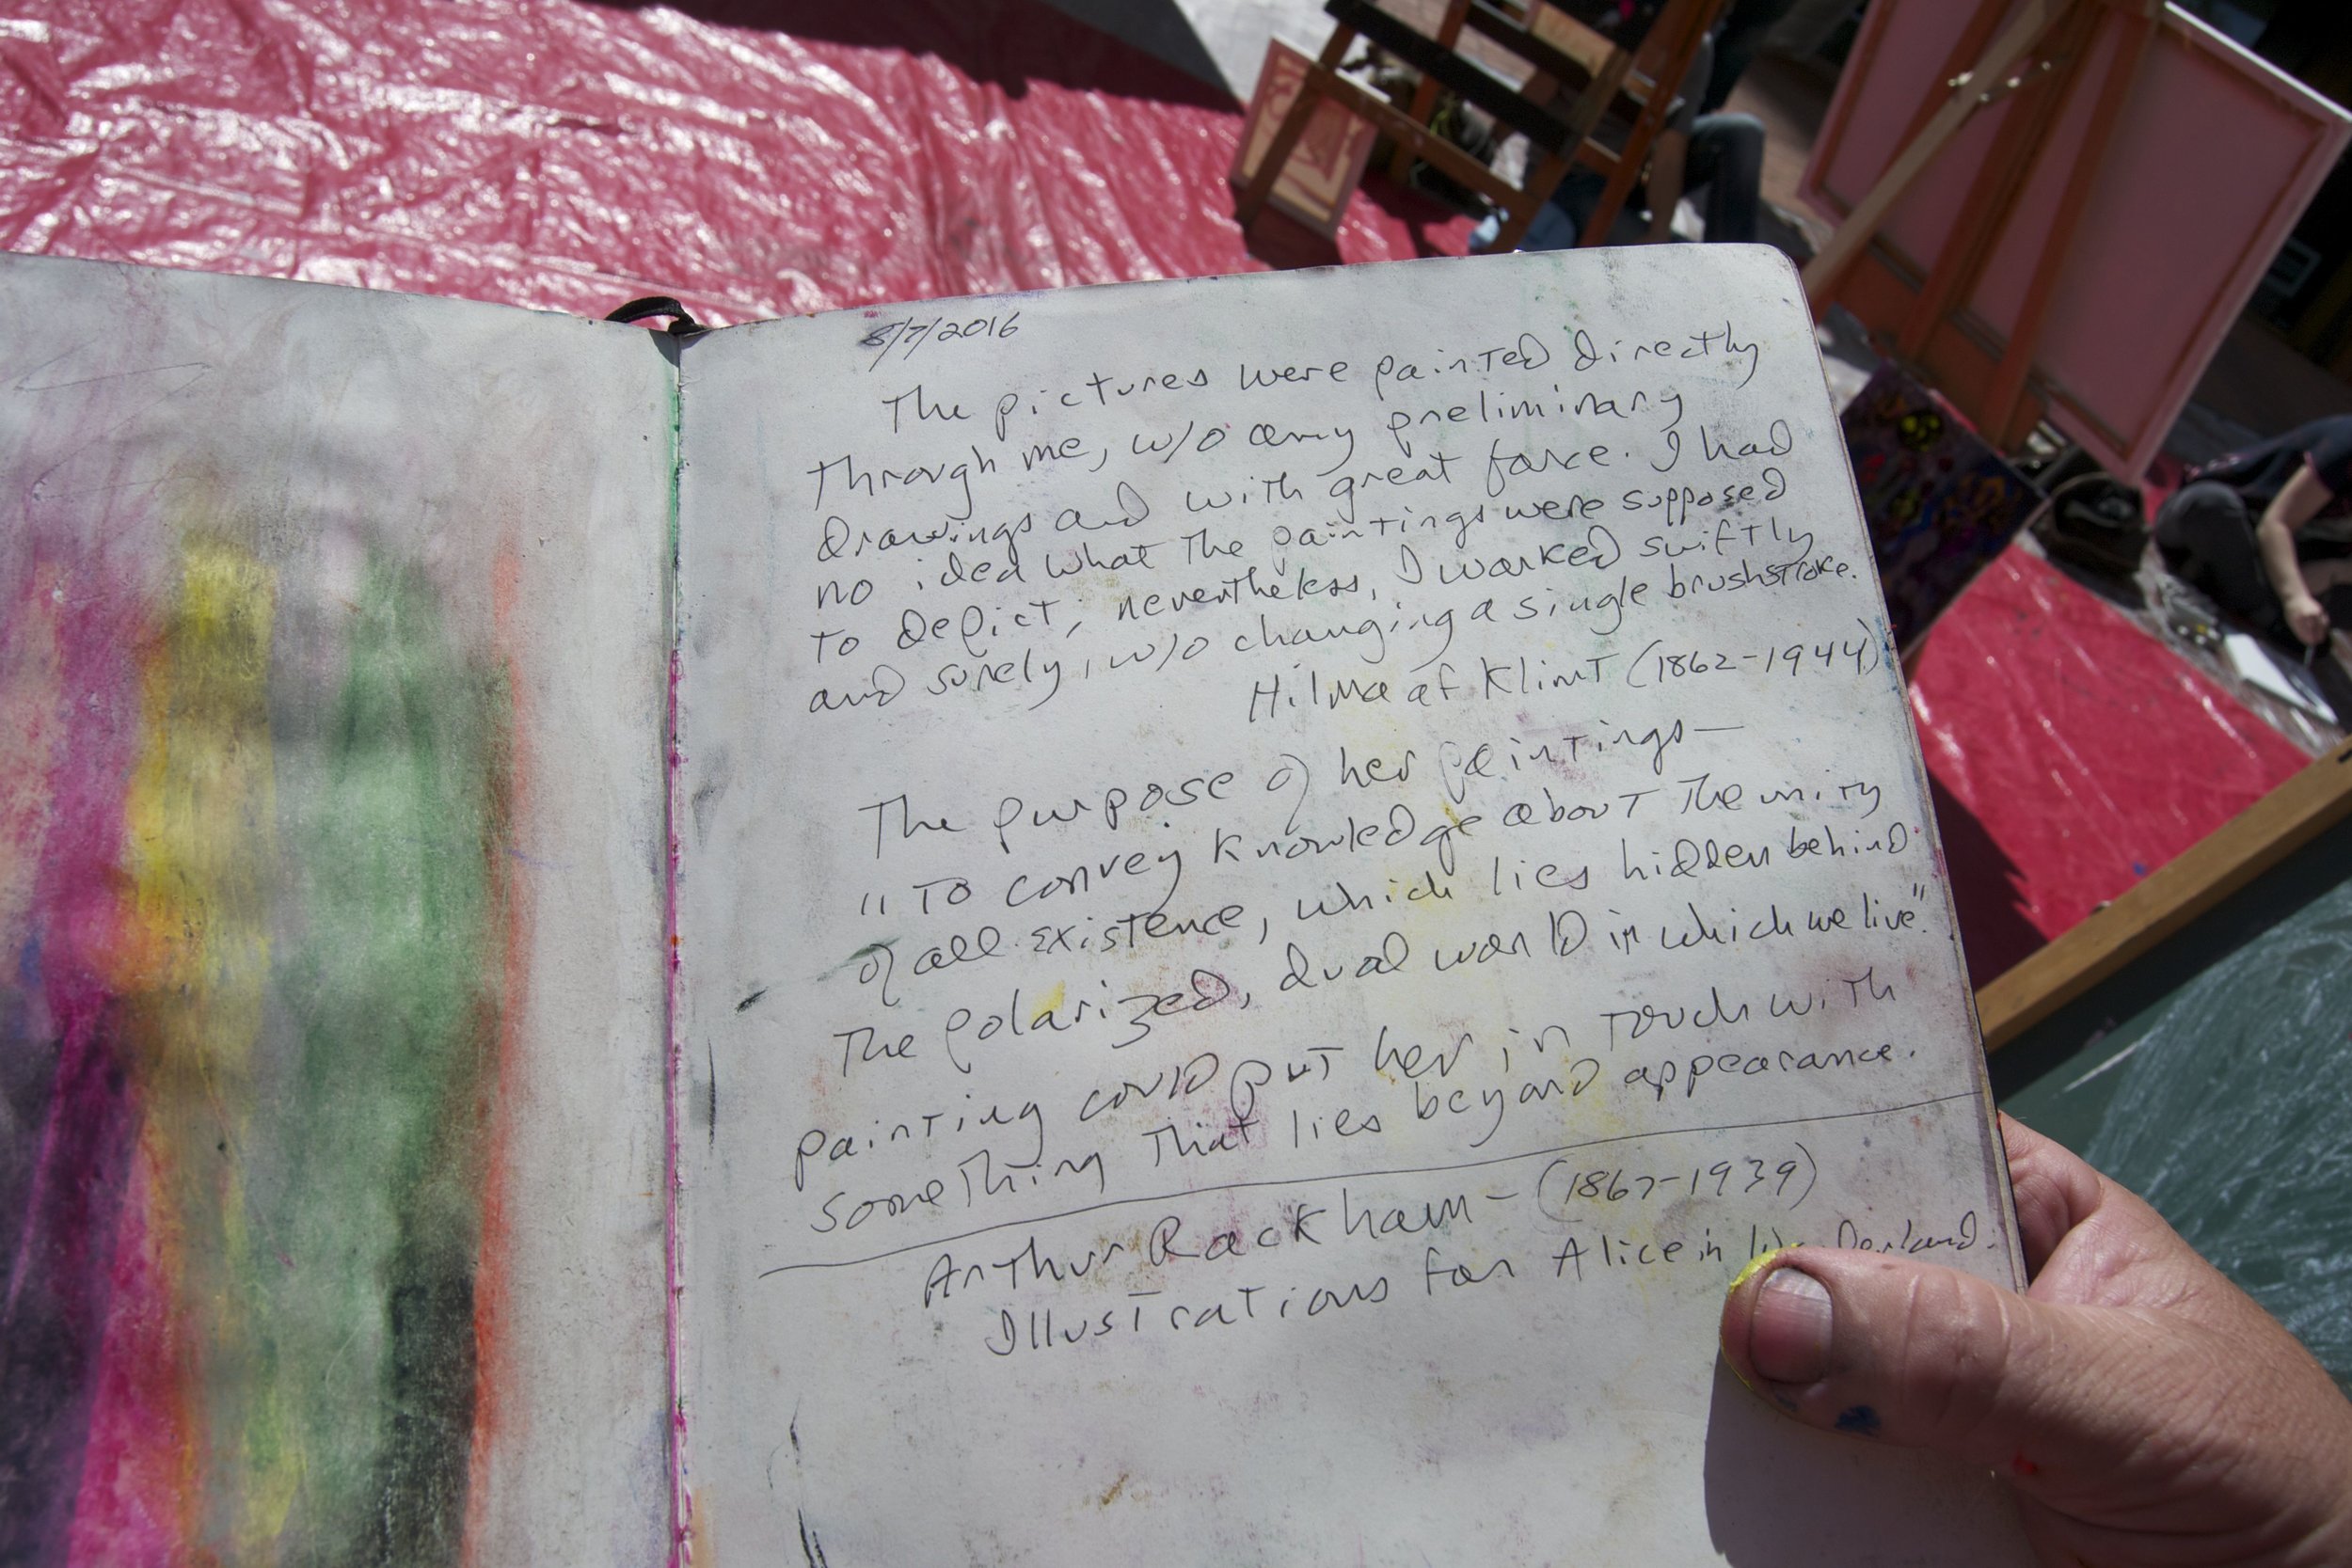 8/7/2016
The pictures were painted directly
through me, w/o any preliminary
drawings and with great force. I had
no idea what the paintings were supposed
to depict, nevertheless, I worked swiftly
and surely, w/o changing a single brushstroke.
Hilma af Klint (1862-1944)
The purpose of her paintings—
"To convey knowledge about the unity
of all existence, which lies hidden behind
the polarized, dual world in which we live".
painting could put her in touch with
something that lies beyond appearance.
Arthur Rackham - (1867-1939)
Illustrations for Alice in Wonderland.